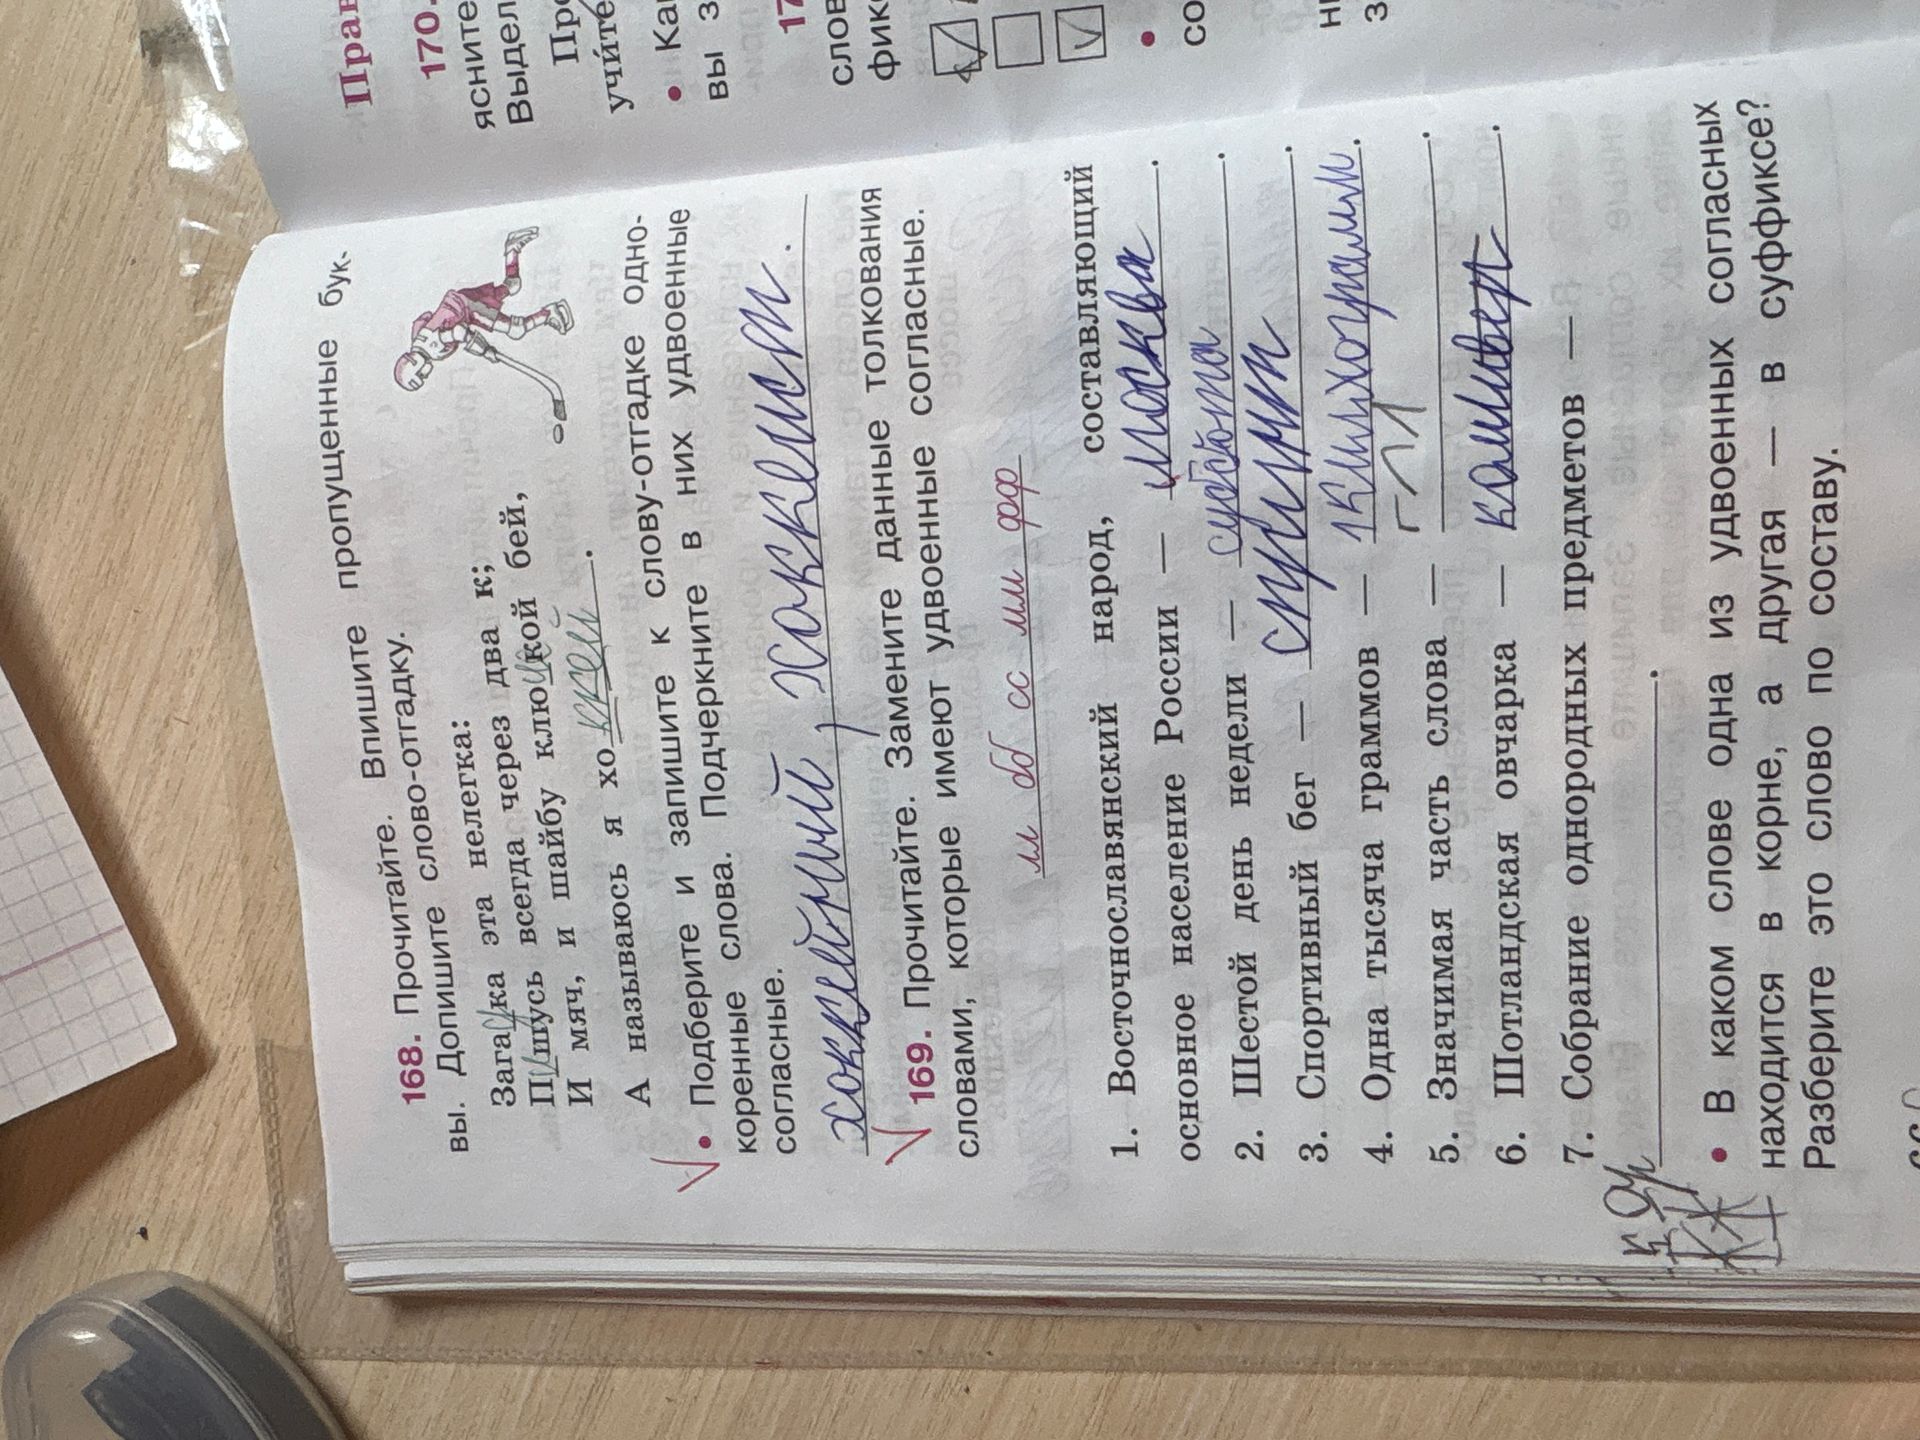 168. Прочитайте. Впишите пропущенные бук-
вы. Допишите слово-отгадку.
Загадка эта нелегка:
Пишусь всегда через два к;
И мяч, и шайбу клюшкой бей,
А называюсь я хоккей.
• Подберите и запишите к слову-отгадке одно-
коренные слова. Подчеркните в них удвоенные
согласные.
хоккейный, хоккеист.
169. Прочитайте. Замените данные толкования
словами, которые имеют удвоенные согласные.
бб сс мм фф
1. Восточнославянский народ, составляющий
основное население России — москва.
2. Шестой день недели — суббота.
3. Спортивный бег —
4. Одна тысяча граммов — 1килхограмм.
5. Значимая часть слова —
6. Шотландская овчарка —
7. Собрание однородных предметов —
• В каком слове одна из удвоенных согласных
находится в корне, а другая — в суффиксе?
Разберите это слово по составу.
66
Прав
170.
ясните
Выдел
Пр
учи́те
• Ка
вы з
17
слов
фик
•
со